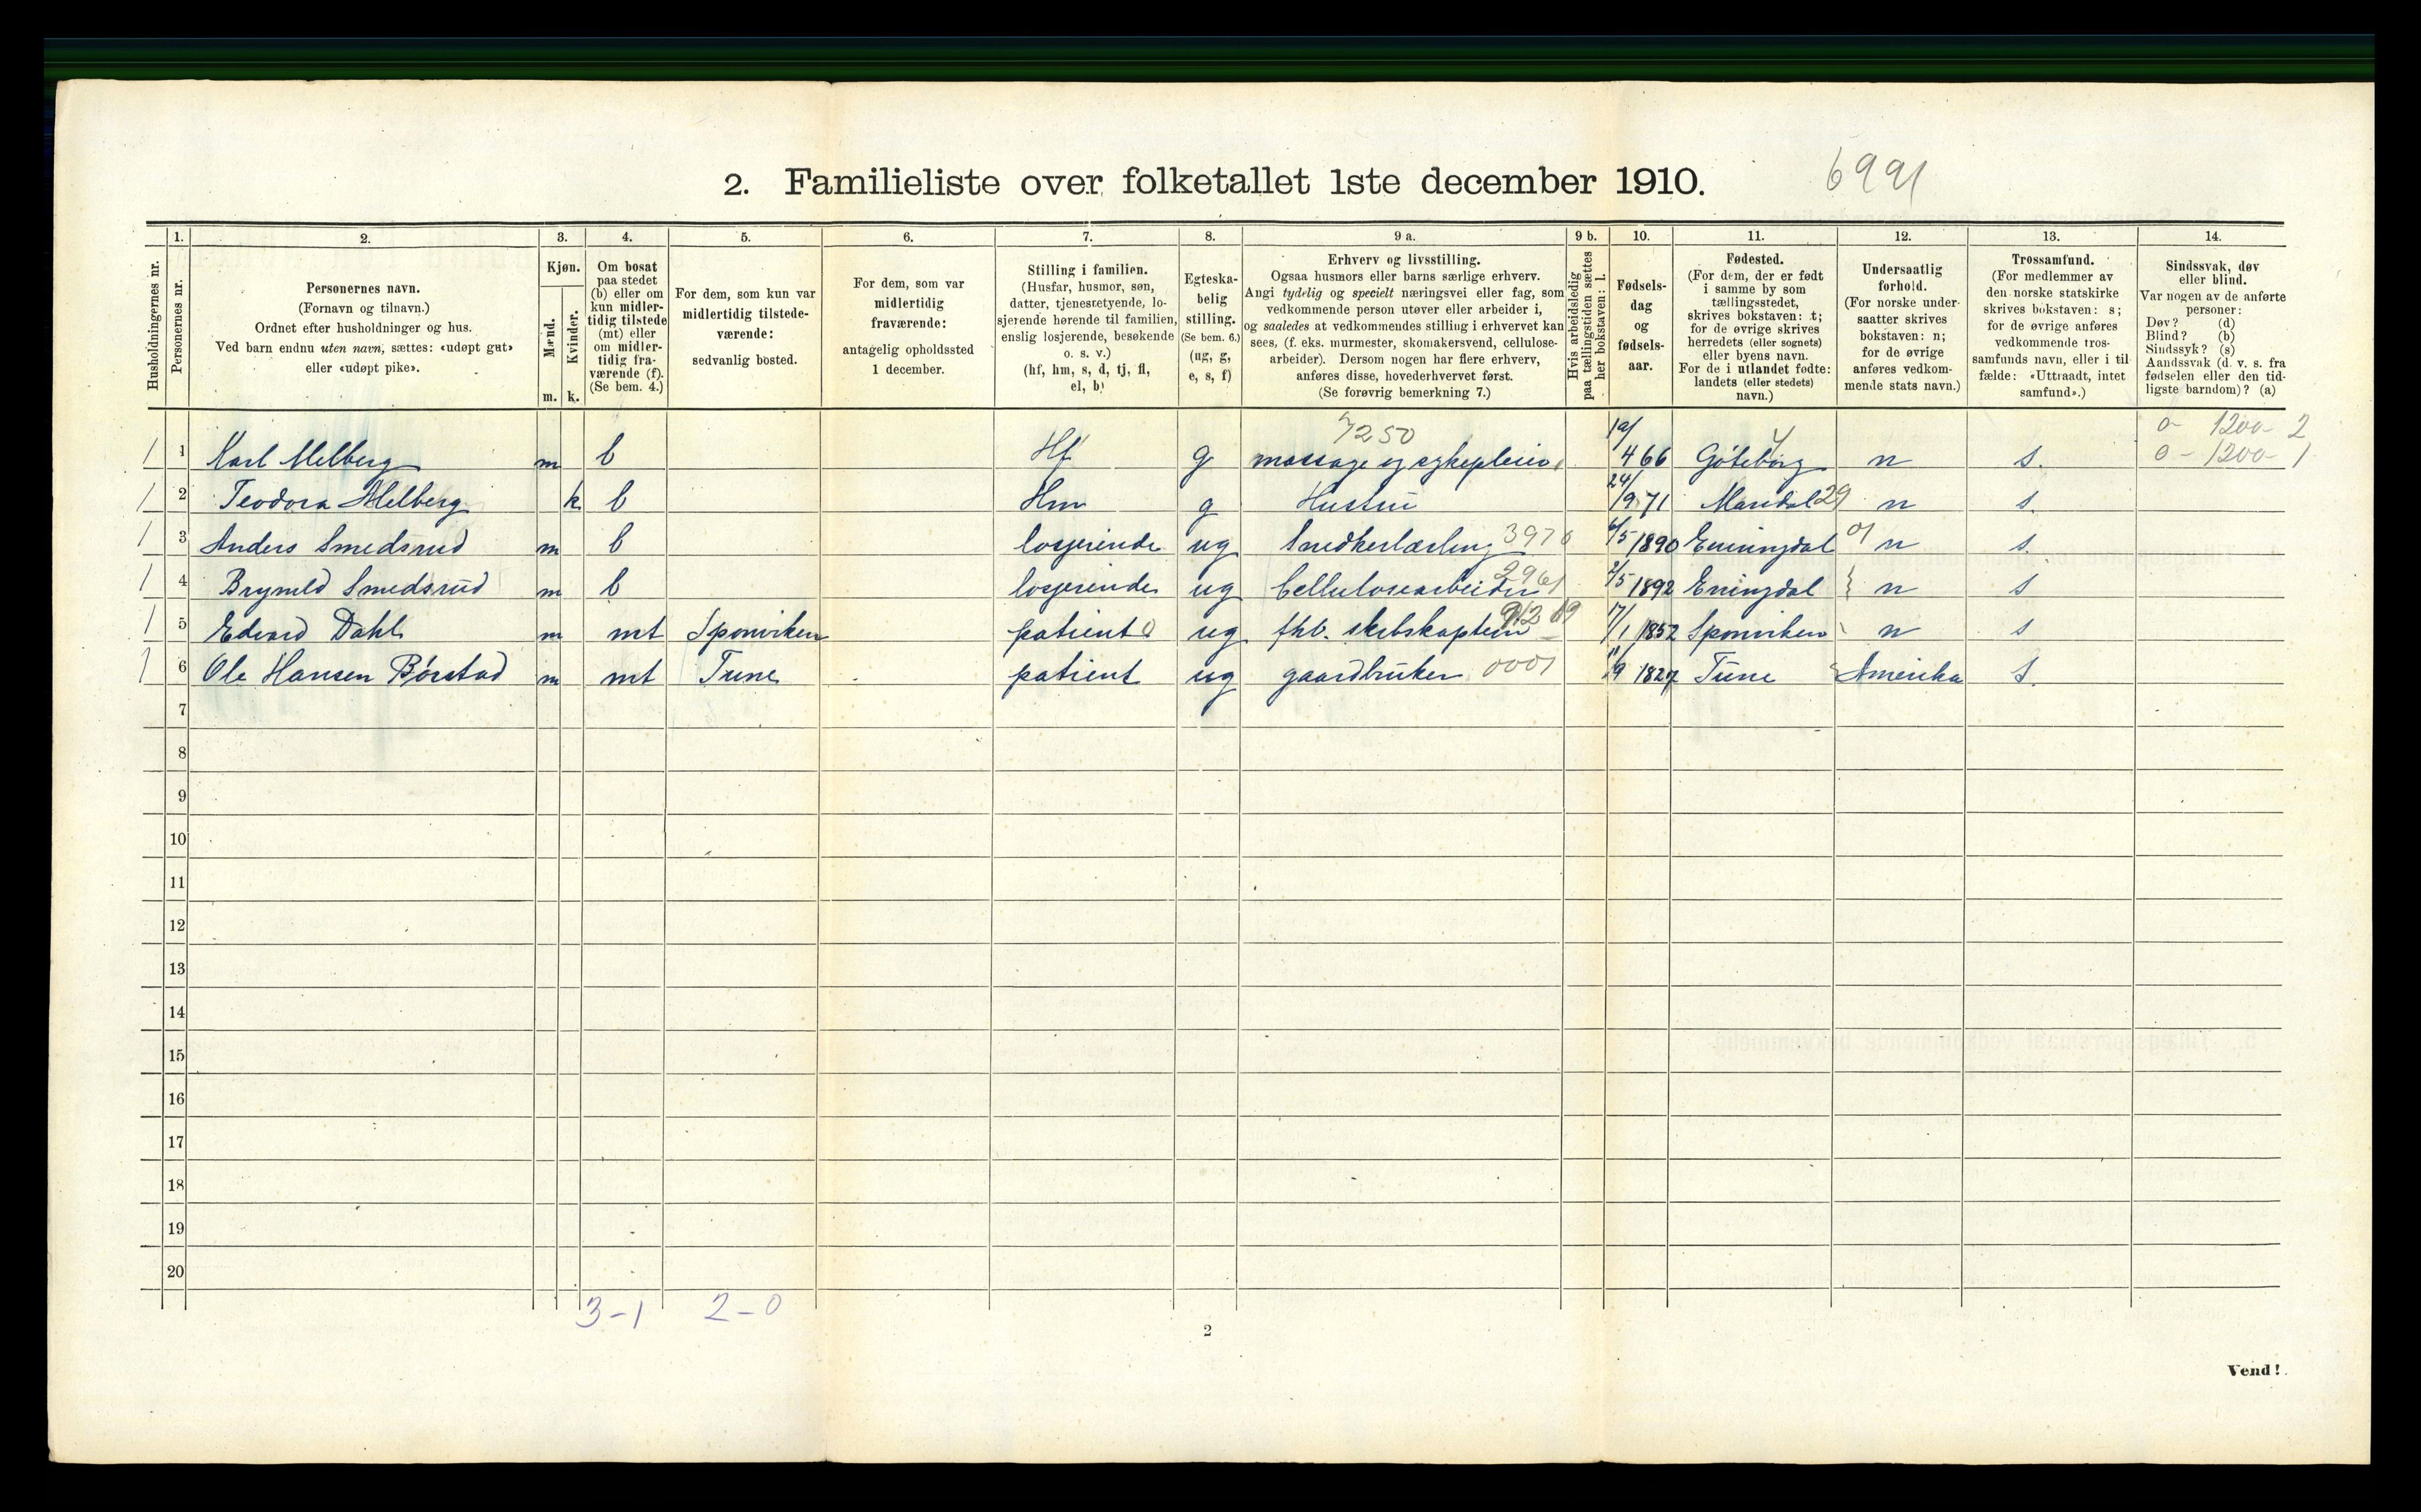 2. Familieliste over folketallet 1ste december 1910.
6991
1. 2. 3. 4. 5. 6. 7. 8. 9 a. 9 b. 10. 11. 12. 13. 14.
Husholdningernes nr.
Personernes nr.
Personernes navn.
(Fornavn og tilnavn.)
Ordnet efter husholdninger og hus.
Ved barn endnu uten navn, sættes: «udøpt gut»
eller «udøpt pike».
Kjøn.
Mænd.
Kvinder.
m. k.
Om bosat
paa stedet
(b) eller om
kun midler-
tidig tilstede
(mt) eller
om midler-
tidig fra-
værende (f).
(Se bem. 4.)
For dem, som kun var
midlertidig tilstede-
værende:
sedvanlig bosted.
For dem, som var
midlertidig
fraværende:
antagelig opholdssted
1 december.
Stilling i familien.
(Husfar, husmor, søn,
datter, tjenestetyende, lo-
sjerende hørende til familien,
enslig losjerende, besøkende
o. s. v.)
(hf, hm, s, d, tj, fl,
el, b)
Egteska-
belig
stilling.
(Se bem. 6.)
(ug, g,
e, s, f)
Erhverv og livsstilling.
Ogsaa husmors eller barns særlige erhverv.
Angi tydelig og specielt næringsvei eller fag, som
vedkommende person utøver eller arbeider i,
og saaledes at vedkommendes stilling i erhvervet kan
sees, (f. eks. murmester, skomakersvend, cellulose-
arbeider). Dersom nogen har flere erhverv,
anføres disse, hovederhvervet først.
(Se forøvrig bemerkning 7.)
Hvis arbeidsledig
paa tællingstiden sættes
her bokstaven: l.
Fødsels-
dag
og
fødsels-
aar.
Fødested.
(For dem, der er født
i samme by som
tællingsstedet,
skrives bokstaven: t;
for de øvrige skrives
herredets (eller sognets)
eller byens navn.
For de i utlandet fødte:
landets (eller stedets)
navn.)
Undersaatlig
forhold.
(For norske under-
saatter skrives
bokstaven: n;
for de øvrige
anføres vedkom-
mende stats navn.)
Trossamfund.
(For medlemmer av
den norske statskirke
skrives bokstaven: s;
for de øvrige anføres
vedkommende tros-
samfunds navn, eller i til-
fælde: «Uttraadt, intet
samfund».)
Sindssvak, døv
eller blind.
Var nogen av de anførte
personer:
Døv? (d)
Blind? (b)
Sindssyk? (s)
Aandssvak (d. v. s. fra
fødselen eller den tid-
ligste barndom)? (a)
7250 0 - 1200 - 2
1 1 Karl Melberg m b Hf g massage og sykepleie 4 66 Göteborg n s. 0 - 1200 - 1
1 2 Teodora Melberg k b Hm g Hustru 24/9 71 Mandal 29 n s.
1 3 Anders Smedsrud m b losjerende ug Snedkerlærling 3970 6/5 1890 Enningdal 01 n s.
1 4 Brynild Smedsrud m b losjerende ug Cellulosearbeider 2961 2/5 1892 Eningdal n s
1 5 Edvard Dahl m mt Sponviken patient ug fhb. skibskaptein 17/1 1852 Sponviken n s
1 6 Ole Hansen Børstad m mt Tune patient ug gaardbruker 0001 11/9 1827 Tune Amerika s.
7
8
9
10
11
12
13
14
15
16
17
18
19
20
3-1 2-0
2
Vend!